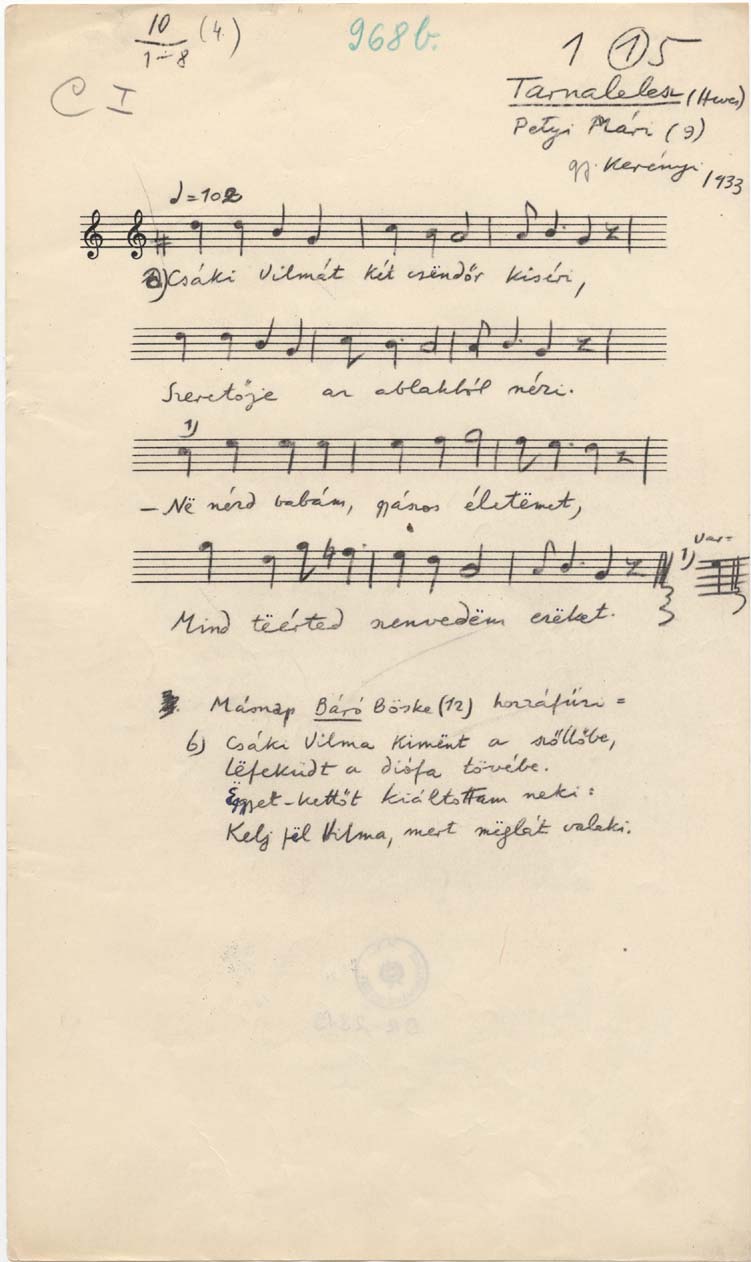 10
1-8
(4.)
968b.
1 (1)5
C I
Tarnalelesz (Heves)
Petyi Mári (9)
gy. Kerényi 1933
♩=102
a) Csáki Vilmát két csëndőr kiséri,
Szeretője az ablakból nézi.
1)
– Në nézd babám, gyászos életëmet,
Var=
1)
Mind tëérted szenvedëm ezëket.
Másnap Báró Böske (12) hozzáfűzi =
b) Csáki Vilma kimënt a szőllőbe,
Lëfeküdt a diófa tövébe.
Ëggyet-kettőt kiáltottam neki:
Kelj fël Vilma, mert mëglát valaki.